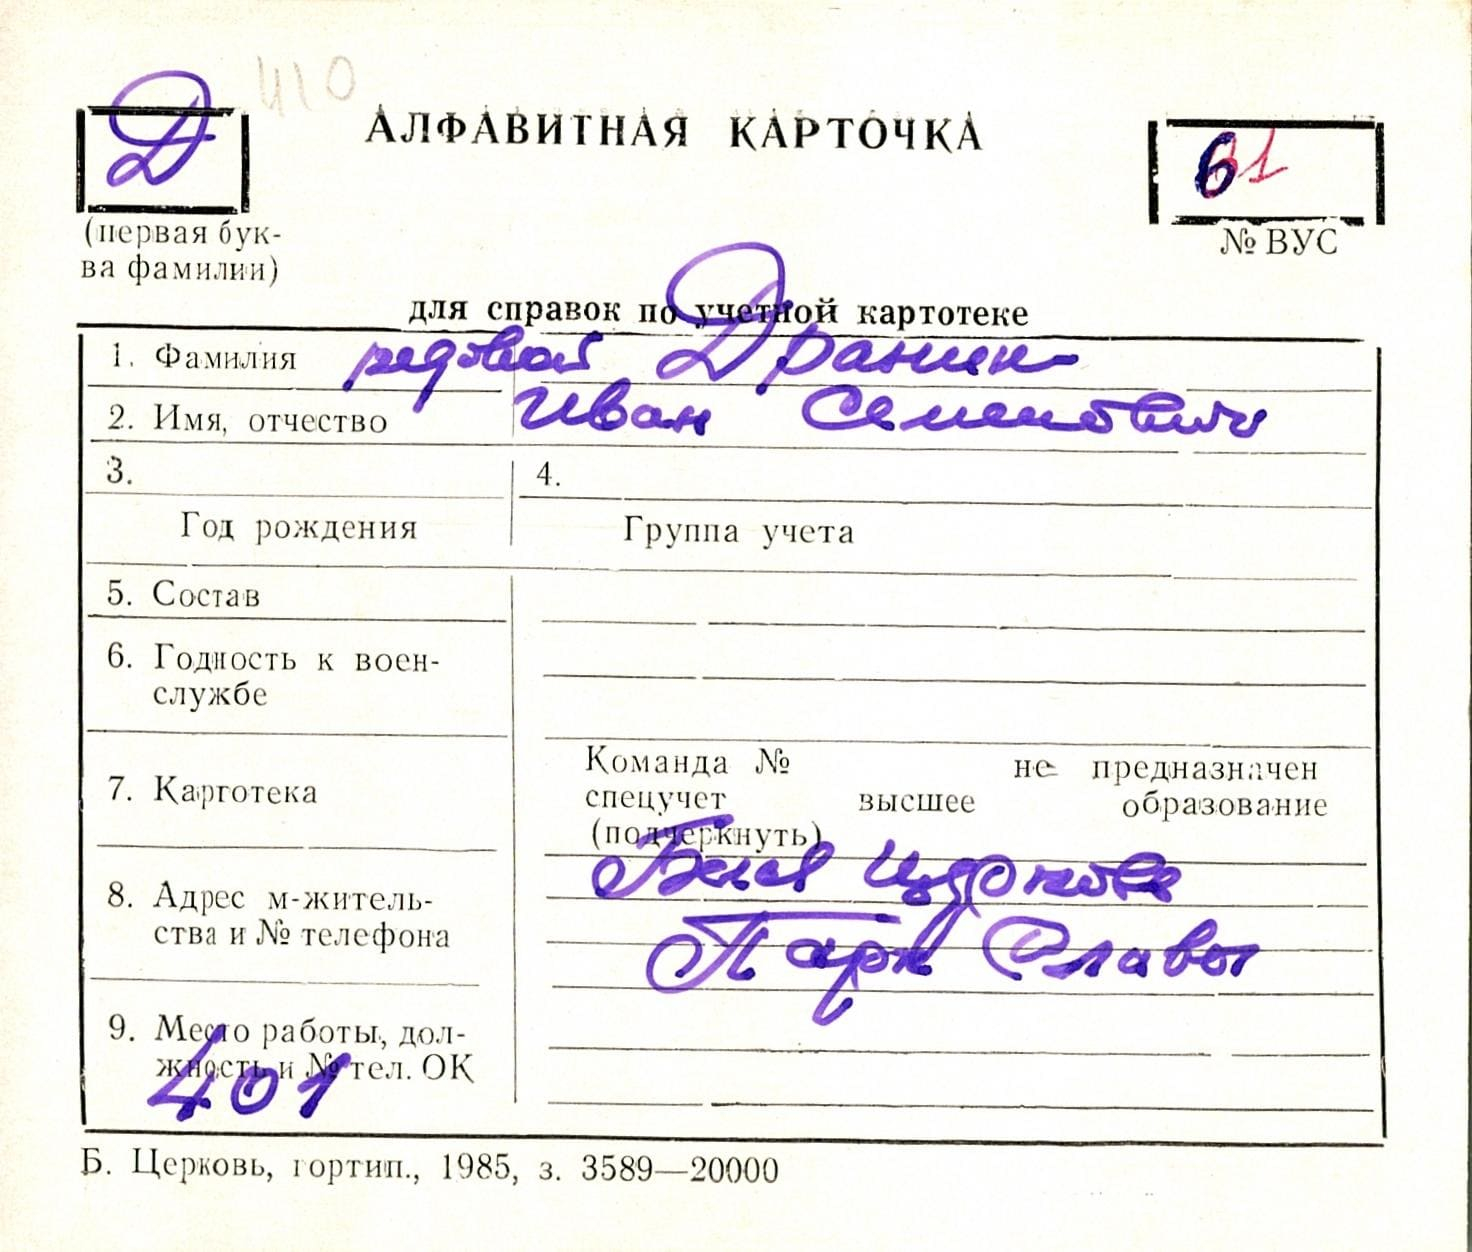 410
Д
АЛФАВИТНАЯ КАРТОЧКА
61
(первая бук-
ва фамилии)
№ ВУС
для справок по учетной картотеке
1. Фамилия рядовой Драник
2. Имя, отчество Иван Семенович
3. 4.
Год рождения Группа учета
5. Состав
6. Годность к воен-
службе
Команда № не предназначен
7. Картотека спецучет высшее образование
(подчеркнуть)
8. Адрес м-житель-
ства и № телефона
Біла Церков
Парк Славы
9. Место работы, дол-
жность и № тел. ОК
401
Б. Церковь, гортип., 1985, з. 3589—20000